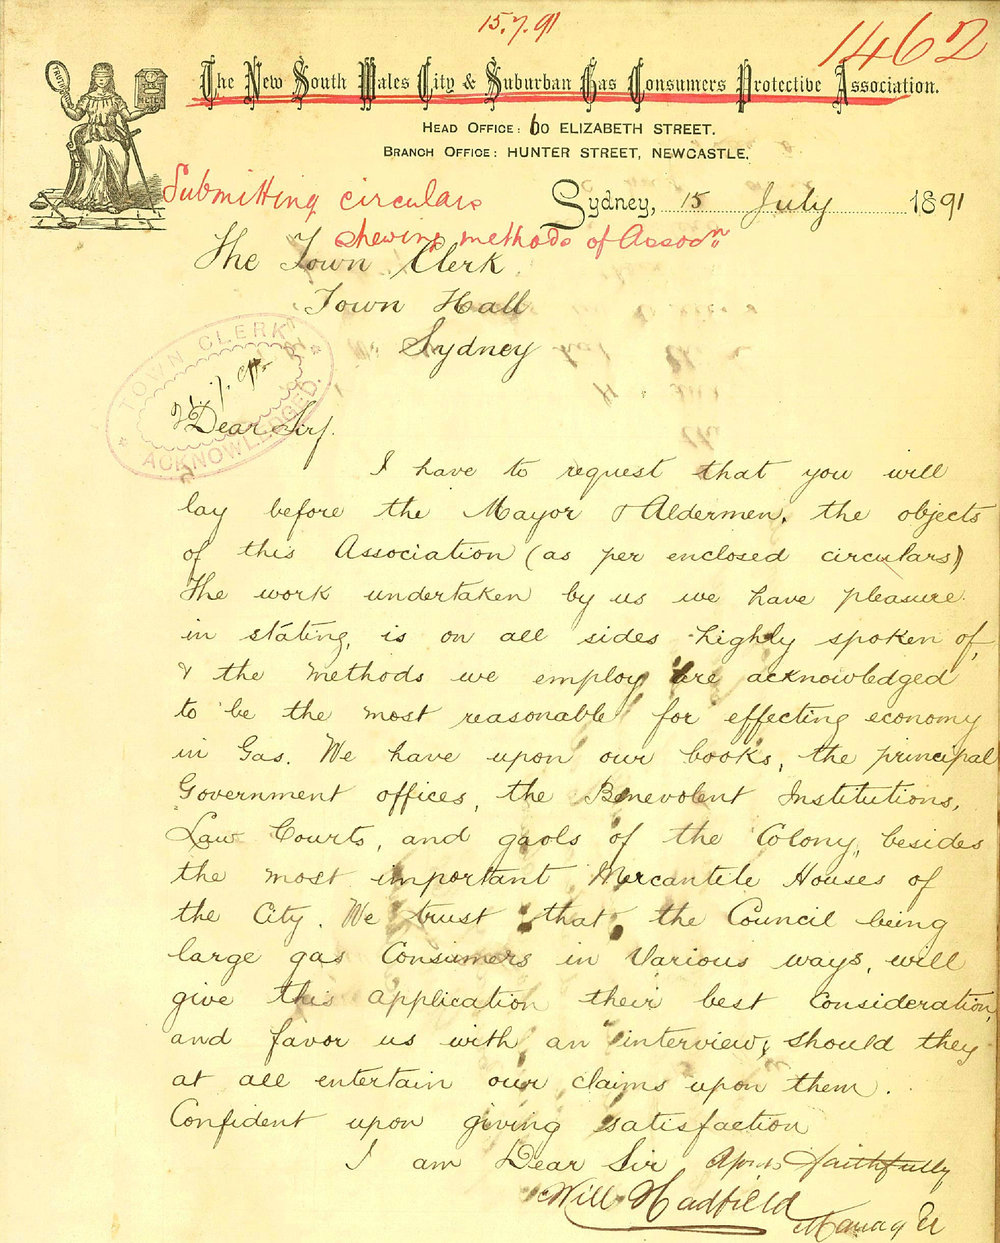 15.7.91
1462
TRUTH
The New South Wales City & Suburban Gas Consumers Protective Association.
HEAD OFFICE: 60 ELIZABETH STREET.
BRANCH OFFICE: HUNTER STREET, NEWCASTLE.
Submitting circulars
shewing methods of Assocn
Sydney, 15 July 1891
The Town Clerk
Town Hall
Sydney
TOWN CLERK
ACKNOWLEDGED.
Dear Sir,
I have to request that you will
lay before the Mayor & Aldermen, the objects
of this Association (as per enclosed circulars)
The work undertaken by us we have pleasure
in stating, is on all sides highly spoken of,
& the methods we employ are acknowledged
to be the most reasonable for effecting economy
in Gas. We have upon our books, the principal
Government offices, the Benevolent Institutions,
Law Courts, and gaols of the Colony, besides
the most important Mercantile Houses of
the City. We trust that the Council being
large gas Consumers in Various ways, will
give this application their best Consideration,
and favor us with an interview, should they
at all entertain our claims upon them.
Confident upon giving satisfaction
I am Dear Sir Yours faithfully
Will Hadfield
Manager